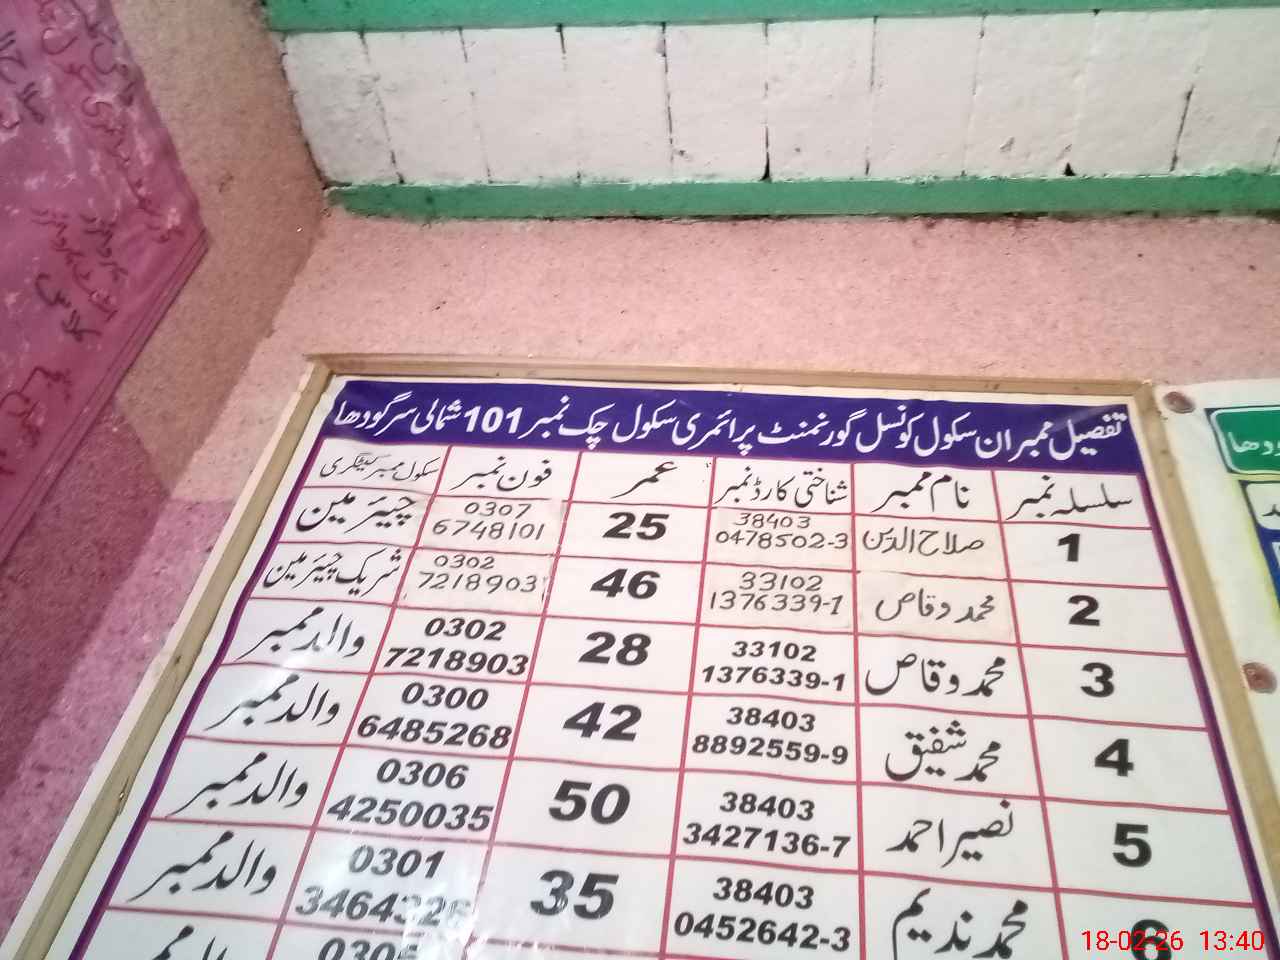 تفصیل ممبران سکول کونسل گورنمنٹ پرائمری سکول چک نمبر 101 شمالی سرگودھا
سلسلہ نمبر نام ممبر شناختی کارڈ نمبر عمر فون نمبر سکول ممبر کیٹگری
1 صلاح الدین 38403 0478502-3 25 0307 6748101 چیئرمین
2 محمد وقاص 33102 1376339-1 46 0302 7218903 شریک چیئرمین
3 محمد وقاص 33102 1376339-1 28 0302 7218903 والد ممبر
4 محمد شفیق 38403 8892559-9 42 0300 6485268 والد ممبر
5 نصیر احمد 38403 3427136-7 50 0306 4250035 والد ممبر
6 محمد ندیم 38403 0452642-3 35 0301 3464326 والد ممبر
0305
کلاس
18-02-26 13:40